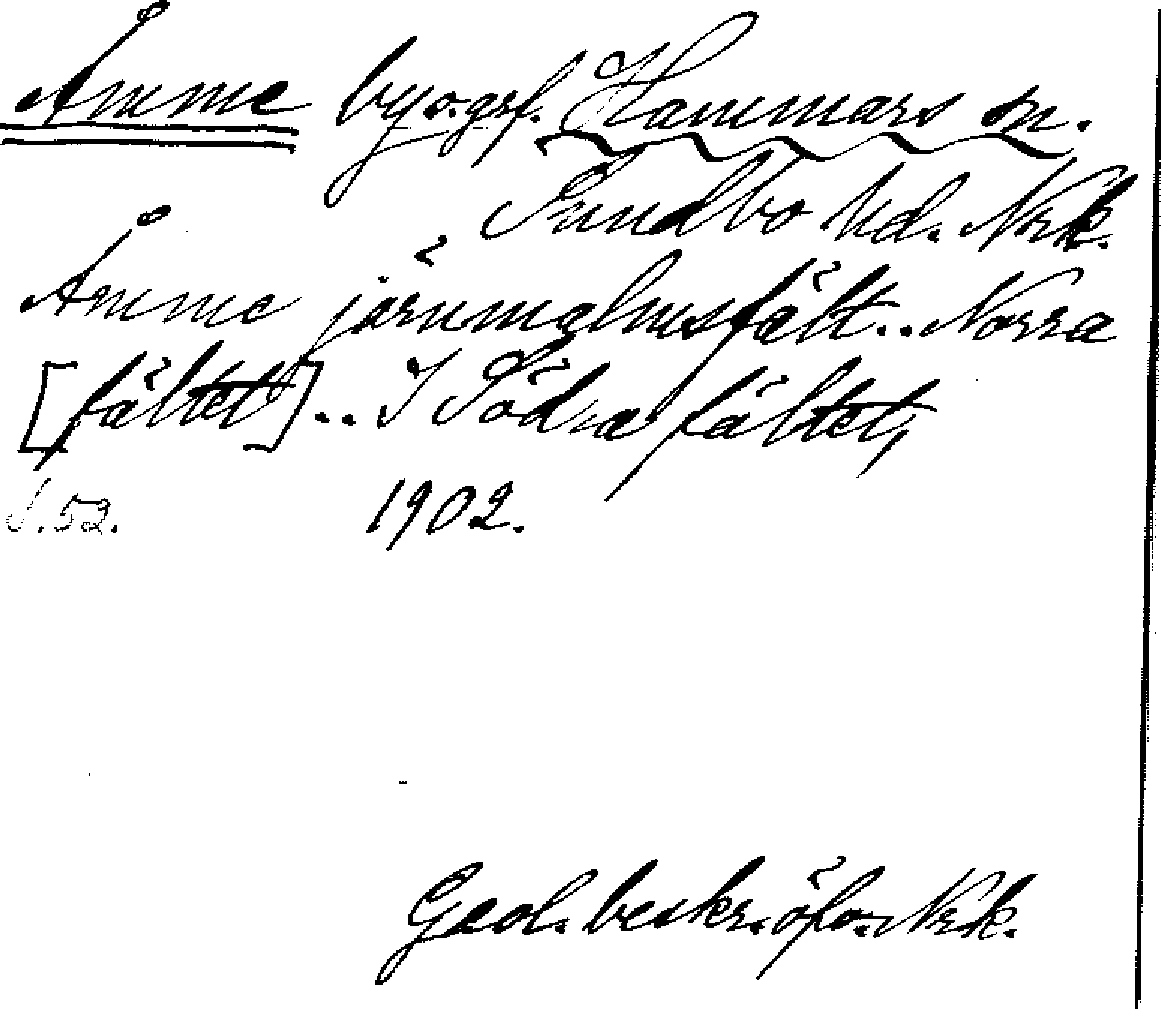 Åmme by o. grf. Hammars sn.
Sundbo hd. Nrk.
Åmme järnmalmsfält .. Norra
[fältet] .. I Södra fältet,
S. 52. 1902.
Geol. beskr. öfv. Nrk.